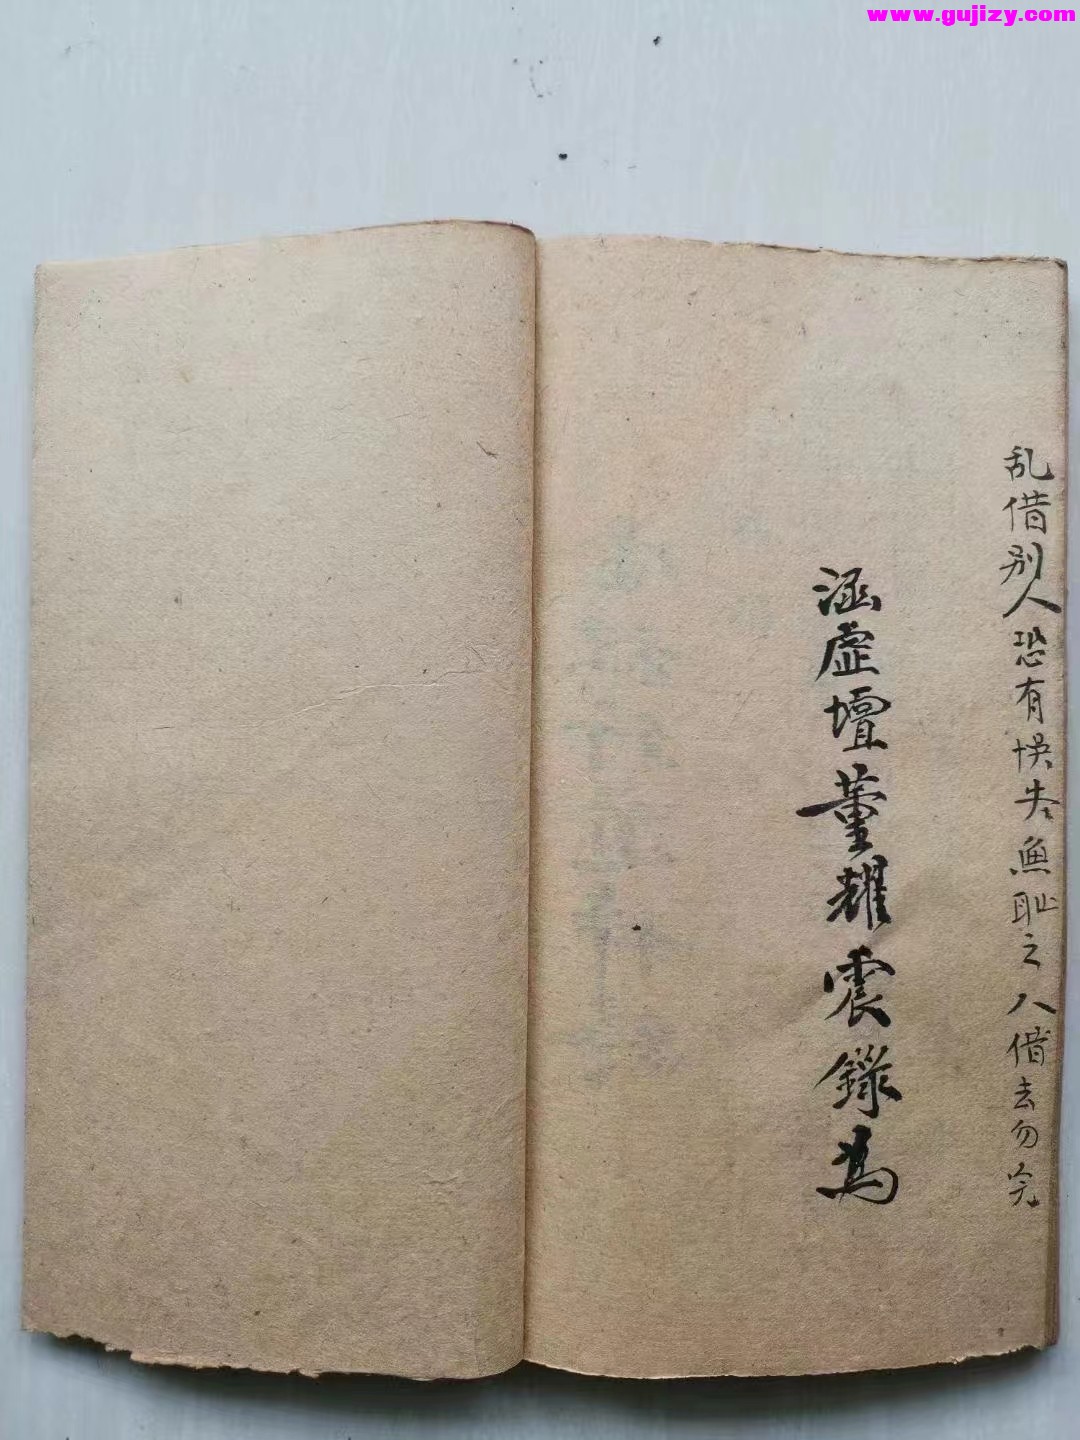 www.gujizy.com
乱借别人恐有悮失無耻之人借去勿完
涵虚壇董耀震錄為